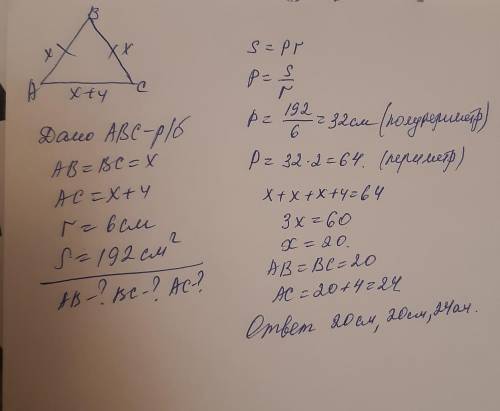 B
x x
A C
x+4
Дано ABC-р/б
AB=BC=x
AC=x+4
r=6см
S=192см²
AB-? BC-? AC-?
S=Pr
P=S/r
P=192/6=32см (полупериметр)
P=32·2=64. (периметр)
x+x+x+4=64
3x=60
x=20.
AB=BC=20
AC=20+4=24
Ответ 20см, 20см, 24см.